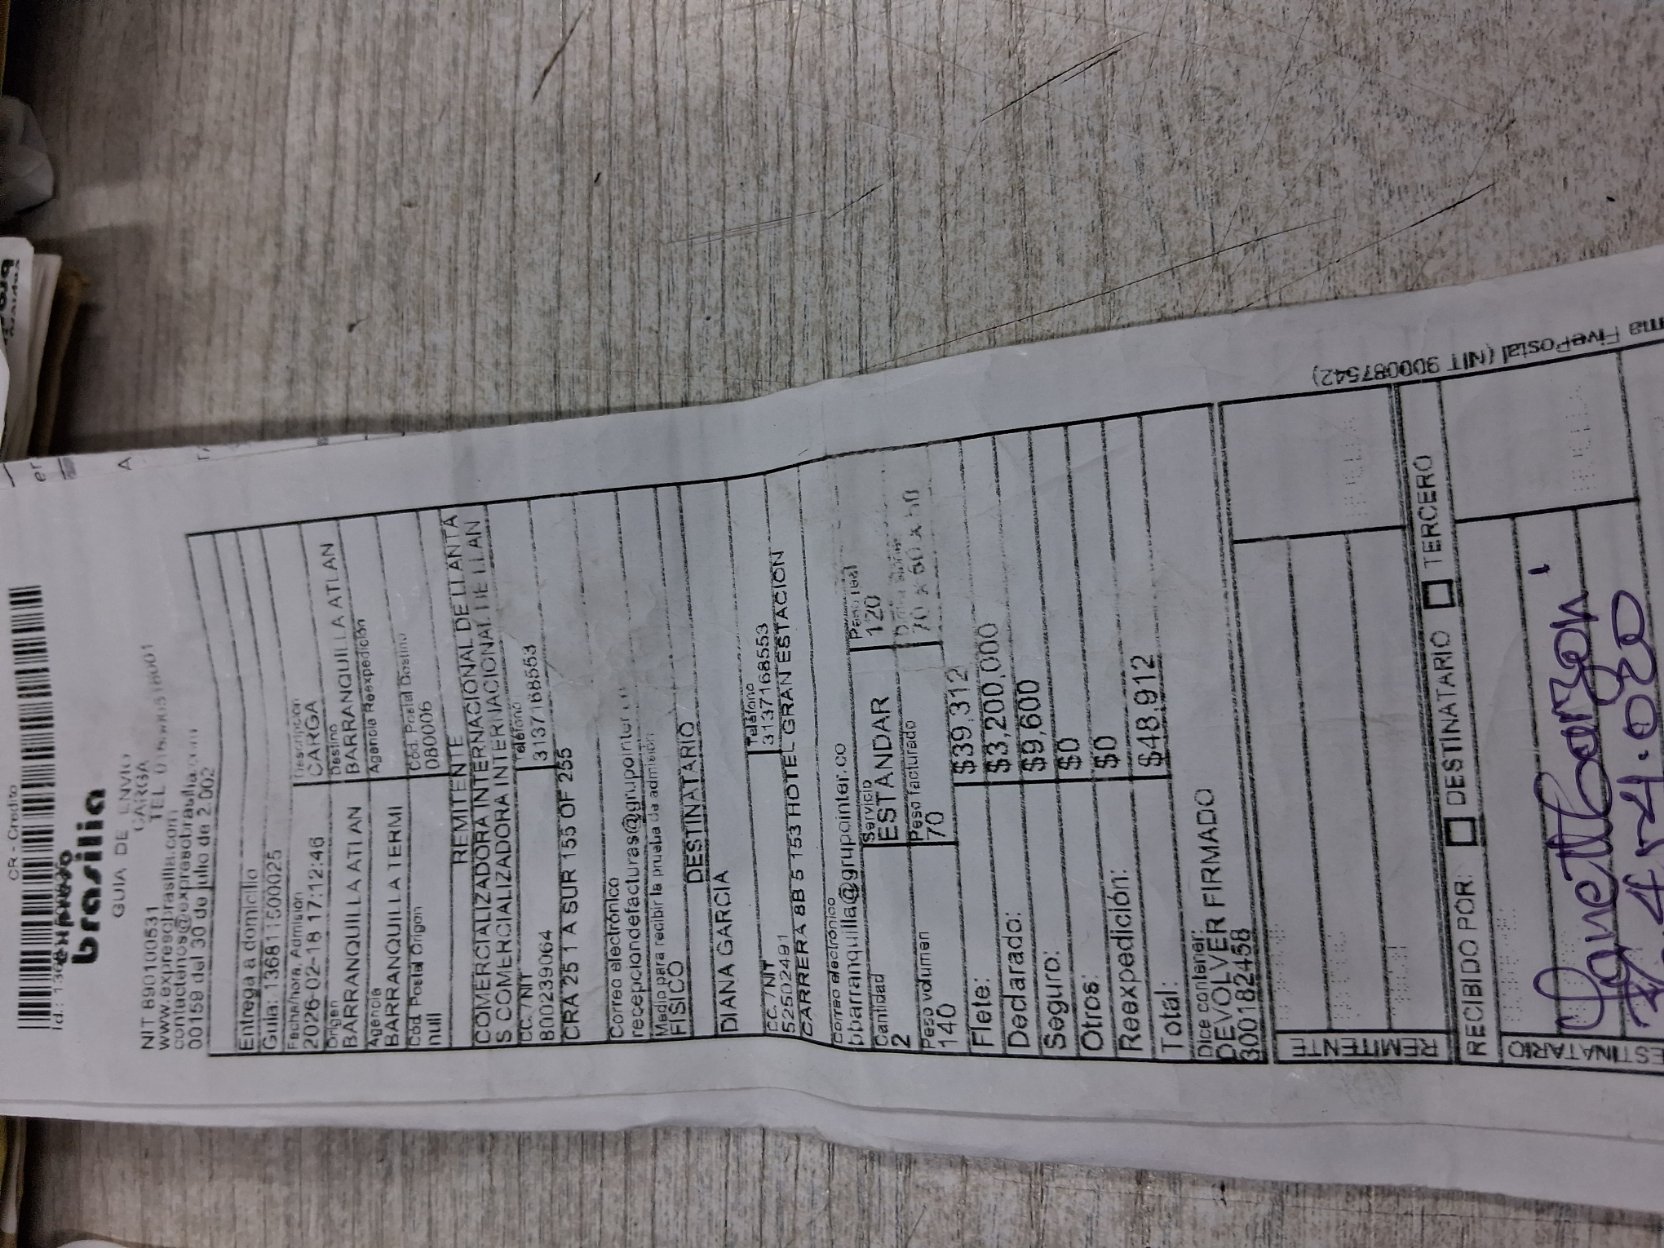 CR - Credito
expreso
brasilia
GUIA DE ENVIO
CARGA
NIT 890100531
www.expresobrasilia.com
contactenos@expresobrasilia.com
00159 del 30 de julio de 2.002
Entrega a domicilio
Guia: 13681 1500025
Fecha/hora, Admisión
2026-02-18 17:12:46
Descripción
CARGA
Origen
BARRANQUILLA ATLAN
Destino
BARRANQUILLA ATLAN
Agencia
BARRANQUILLA TERMI
Agencia Reexpedición
Cód. Postal Origen
null
Cód. Postal Destino
080006
REMITENTE
COMERCIALIZADORA INTERNACIONAL DE LLANTA
S COMERCIALIZADORA INTERNACIONAL DE LLAN
CC. / NIT
800239064
Teléfono
3137168553
CRA 25 1 A SUR 155 OF 255
Correo electrónico
recepciondefacturas@grupointer
Medio para recibir la prueba de admisión
FISICO
DESTINATARIO
DIANA GARCIA
CC. / NIT
52502491
Teléfono
3137168553
CARRERA 8B 5 153 HOTEL GRAN ESTACION
Correo electrónico
bbarranquilla@grupointer.co
Cantidad
2
Servicio
ESTANDAR
Peso real
120
Peso volumen
140
Peso facturado
70
70 x 60 x 50
Flete: $39,312
Declarado: $3,200,000
Seguro: $9,600
Otros: $0
Reexpedición: $0
Total: $48,912
Dice contener:
DEVOLVER FIRMADO
300182458
REMITENTE
RECIBIDO POR: DESTINATARIO TERCERO
FivePostal (NIT 900087542)